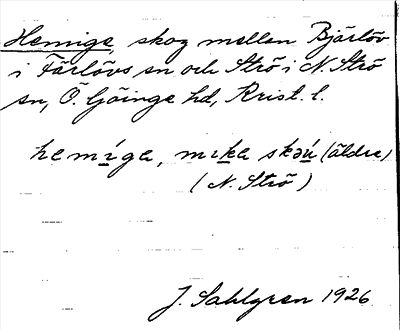 Hemige, skog mellan Bjärlöv
i Färlövs sn och Strö i N. Strö
sn, Ö. Göinge hd, Krist. l.
hemíga, mıka skǝú (äldre)
(N. Strö)
J. Sahlgren 1926